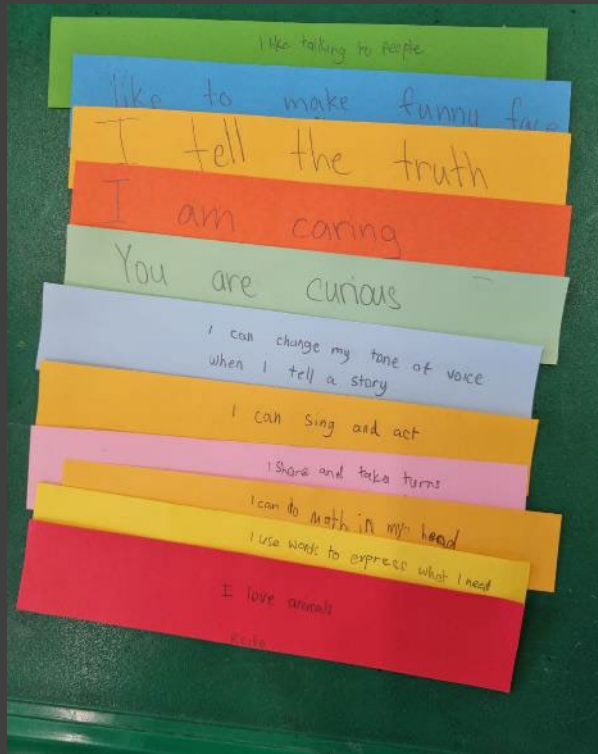 I like talking to people
like to make funny face
I tell the truth
I am caring
You are curious
I can change my tone of voice
when I tell a story
I can sing and act
I share and take turns
I can do math in my head
I use words to express what I need
I love animals